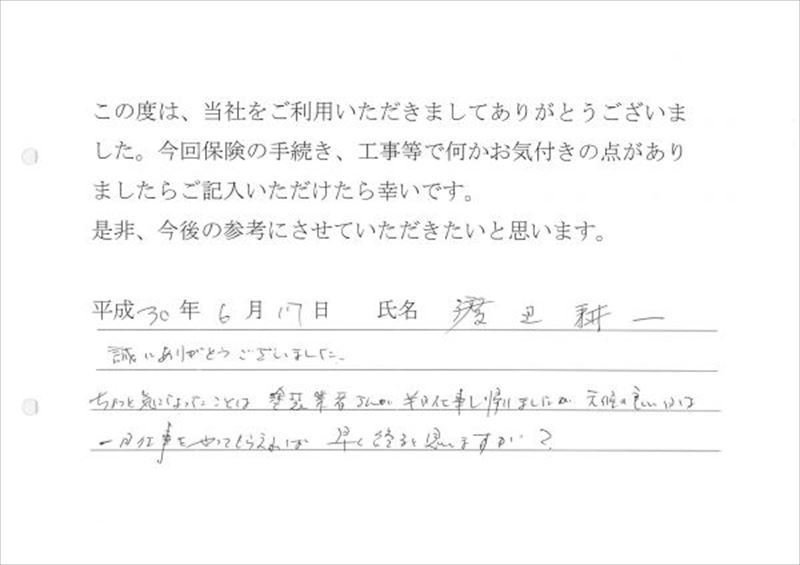 この度は、当社をご利用いただきましてありがとうございま
した。今回保険の手続き、工事等で何かお気付きの点があり
ましたらご記入いただけたら幸いです。
是非、今後の参考にさせていただきたいと思います。
平成30年6月17日 氏名 渡辺 耕一
誠にありがとうございました。
ちょっと気になったことは 塗装業者さんが半日仕事し帰りましたが 天候の良い日は
一日仕事をやってもらえれば 早く終ると思いますが?